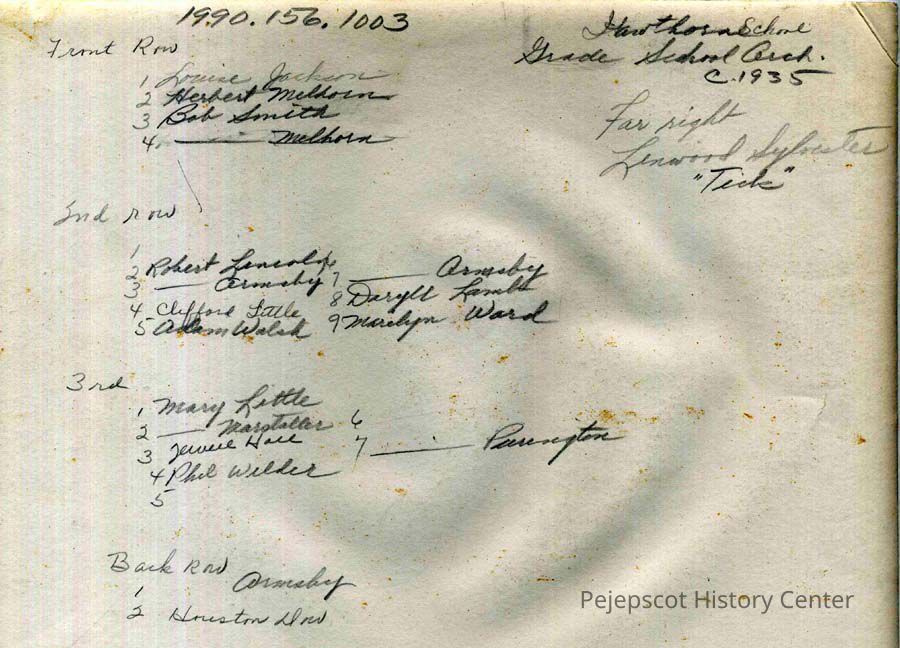 1990.156.1003
Hawthorn School
Grade School Orch.
C.1935
Far right
Linwood Sylvester
"Tick"
Front Row
1 Louise Jackson
2 Herbert Melhorn
3 Bob Smith
4 —— Melhorn
2nd row
1
2 Robert Lincoln
3 —— Ormsby
4 Clifford Little
5 Adam Walsh
6
7 —— Ormsby
8 Daryll Lamb
9 Marilyn Ward
3rd
1 Mary Little
2 —— Marstaller
3 Jewell Hall
4 Phil Wilder
5
6
7 —— Purington
Back Row
1 Ormsby
2 Houston Dow
Pejepscot History Center